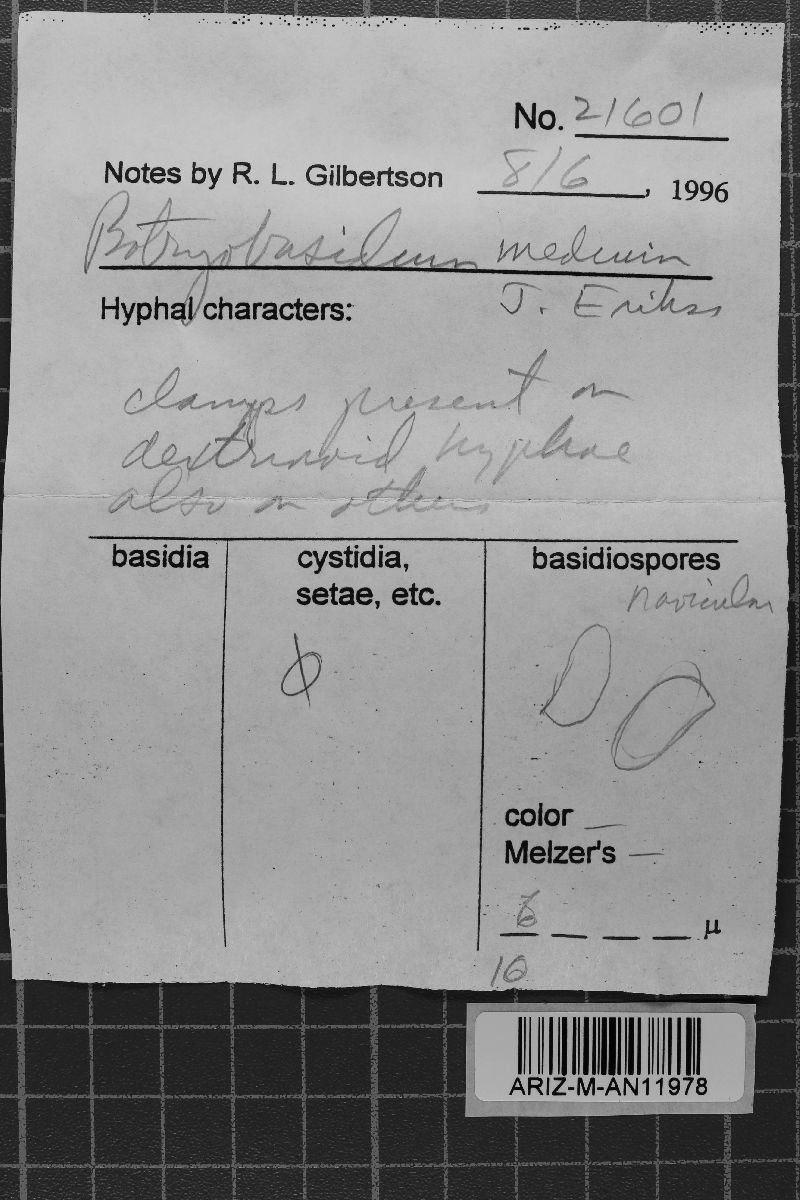 No. 21601
Notes by R. L. Gilbertson 8/6, 1996
Botryobasidium medium
J. Erikss
Hyphal characters:
clamps present on
dextrinoid hyphae
also on others
basidia cystidia, basidiospores
setae, etc.
navicular
color —
Melzer's —
6
_ _ _ _ µ
10
ARIZ-M-AN11978